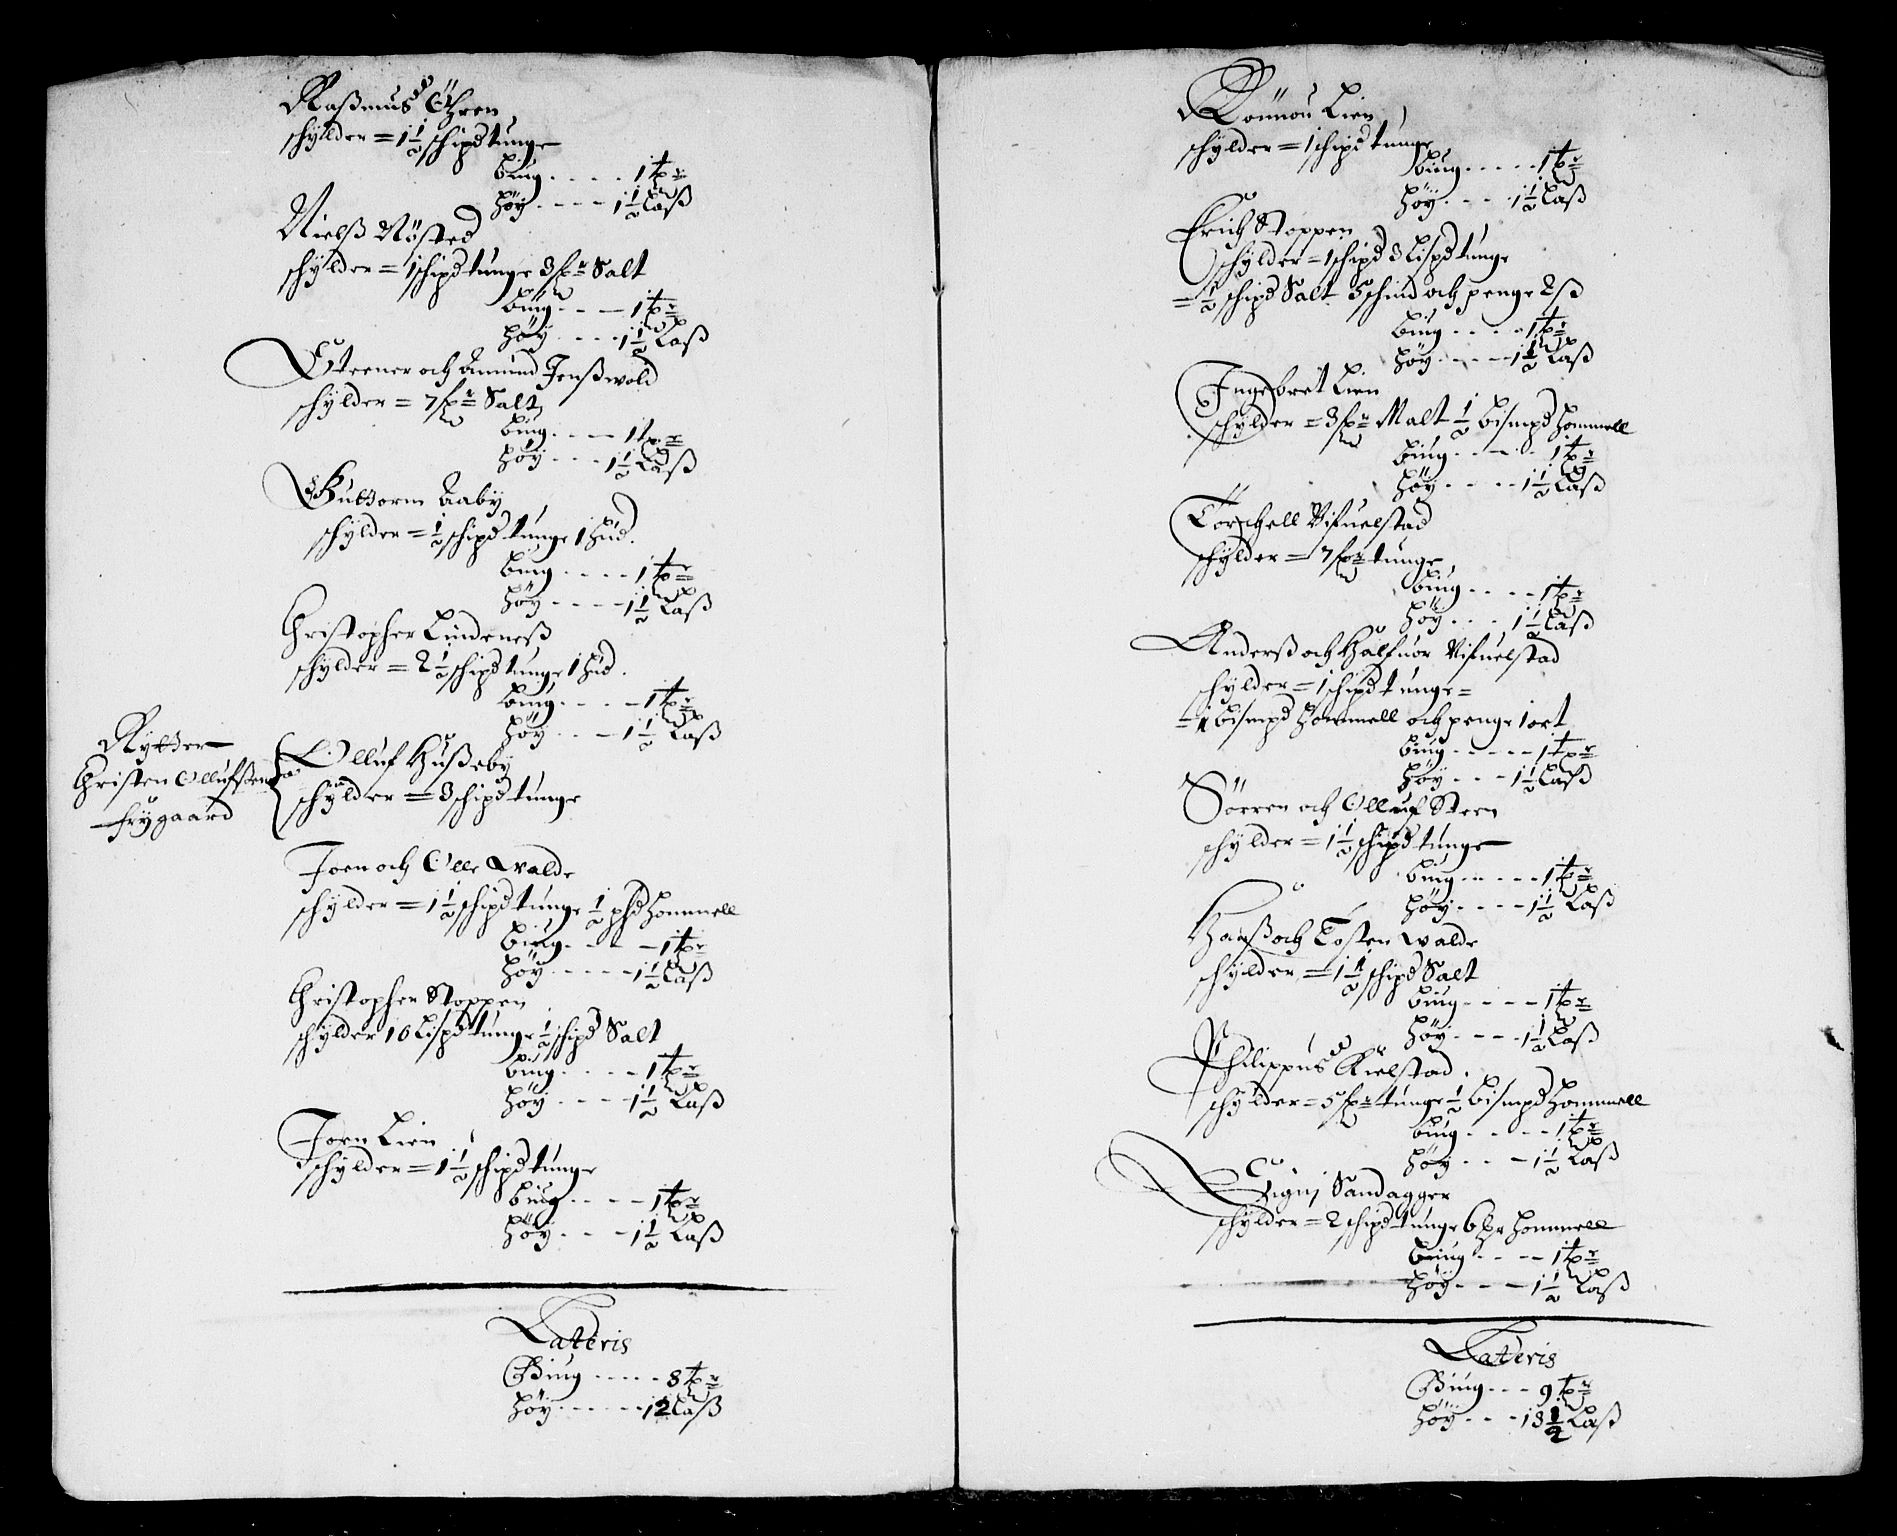 Rasmus Øhren
schylder = 1 1/2 schipd tunge
biug - - - - 1 tøn
høy - - - - 1 1/2 Lasß
Nielß Røsted
schylder = 1 schipd tunge 3 spr Salt
biug - - - 1 tøn
høy - - - - 1 1/2 Lasß
Steener och Amund Jenßwold
schylder = 7 spr Salt
biug - - - 1 tøn
høy - - - 1 1/2 Lasß
Guttorm Aaby
schylder = 1/2 schipd tunge 1 Hud.
biug - - - - 1 tøn
høy - - - - 1 1/2 Lasß
Christopher Lindeneß
schylder = 2 1/2 schipd tunge 1 Hud.
biug - - - - 1 tøn
høy - - - 1 1/2 Lasß
Rytter
Christen Ollufßen
frygaard
Olluf Hußeby
schylder = 3 schipd tunge
Joen och Olle Walde
schylder = 1 1/2 schipd tunge 1/2 phd Hommell
biug - - - - 1 tøn
høy - - - - - 1 1/2 Lasß
Christopher Stoppen
schylder 10 Lispd tunge 1/2 schipd Salt
biug - - - - 1 tøn
høy - - - - 1 1/2 Lasß
Joen Lien
schylder = 1 1/2 schipd tunge
biug - - - - 1 tøn
høy - - - 1 1/2 Lasß
Lateris
Biug - - - - - 8 tøn
høy - - - - - 12 Lasß
Rønnou Lien
schylder = 1 schipd tunge
biug - - - - 1 tøn
høy - - - - 1 1/2 Lasß
Erich Stoppen
schylder = 1 schipd 3 Lispd tunge
= 1/2 schipd Salt 5 schind och penge 2 ß
biug - - - - 1 tøn
høy - - - - 1 1/2 Lasß
Ingebret Lien
schylder = 3 spr Malt 1/2 bismpd Hommell
biug - - - - 1 tøn
høy - - - - 1 1/2 Lasß
Torchell Vifuelstad
schylder = 7 spr tunge
biug - - - - 1 tøn
høy - - - 1 1/2 Lasß
Anderß och Halfuor Vifuelstad
schylder = 1 schipd tunge =
= 1 bismpd Hommell och penge 1 ort
biug - - - - - 1 tøn
høy - - - 1 1/2 Lasß
Sørren och Olluf Steen
schylder = 1 1/2 schipd tunge
biug - - - - - 1 tøn
høy - - - - 1 1/2 Lasß
Hanß och Tosten Walde
schylder = 1 1/2 schipd Salt
biug - - - - 1 tøn
høy - - - - 1 1/2 Lasß
Philippus Kielstad
schylder = 5 spr tunge 1/2 bismpd Hommell
biug - - - - - 1 tøn
høy - - - 1 1/2 Lasß
Signj Sandagger
schylder = 2 schipd tunge 6 Hommell
biug - - - - 1 tøn
høy - - - - 1 1/2 Lasß
Lateris
Biug - - - 9 tøn
høy - - - 13 1/2 Lasß